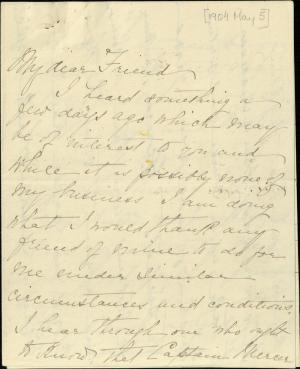 [1904 May 5]
My dear Friend
I heard something a
few days ago which may
be of interest to you and
while it is possibly none of
my business I am doing
what I would thank any
friend of mine to do for
me under similar
circumstances and conditions.
I hear through one who ought
to know, that Captain Mercer